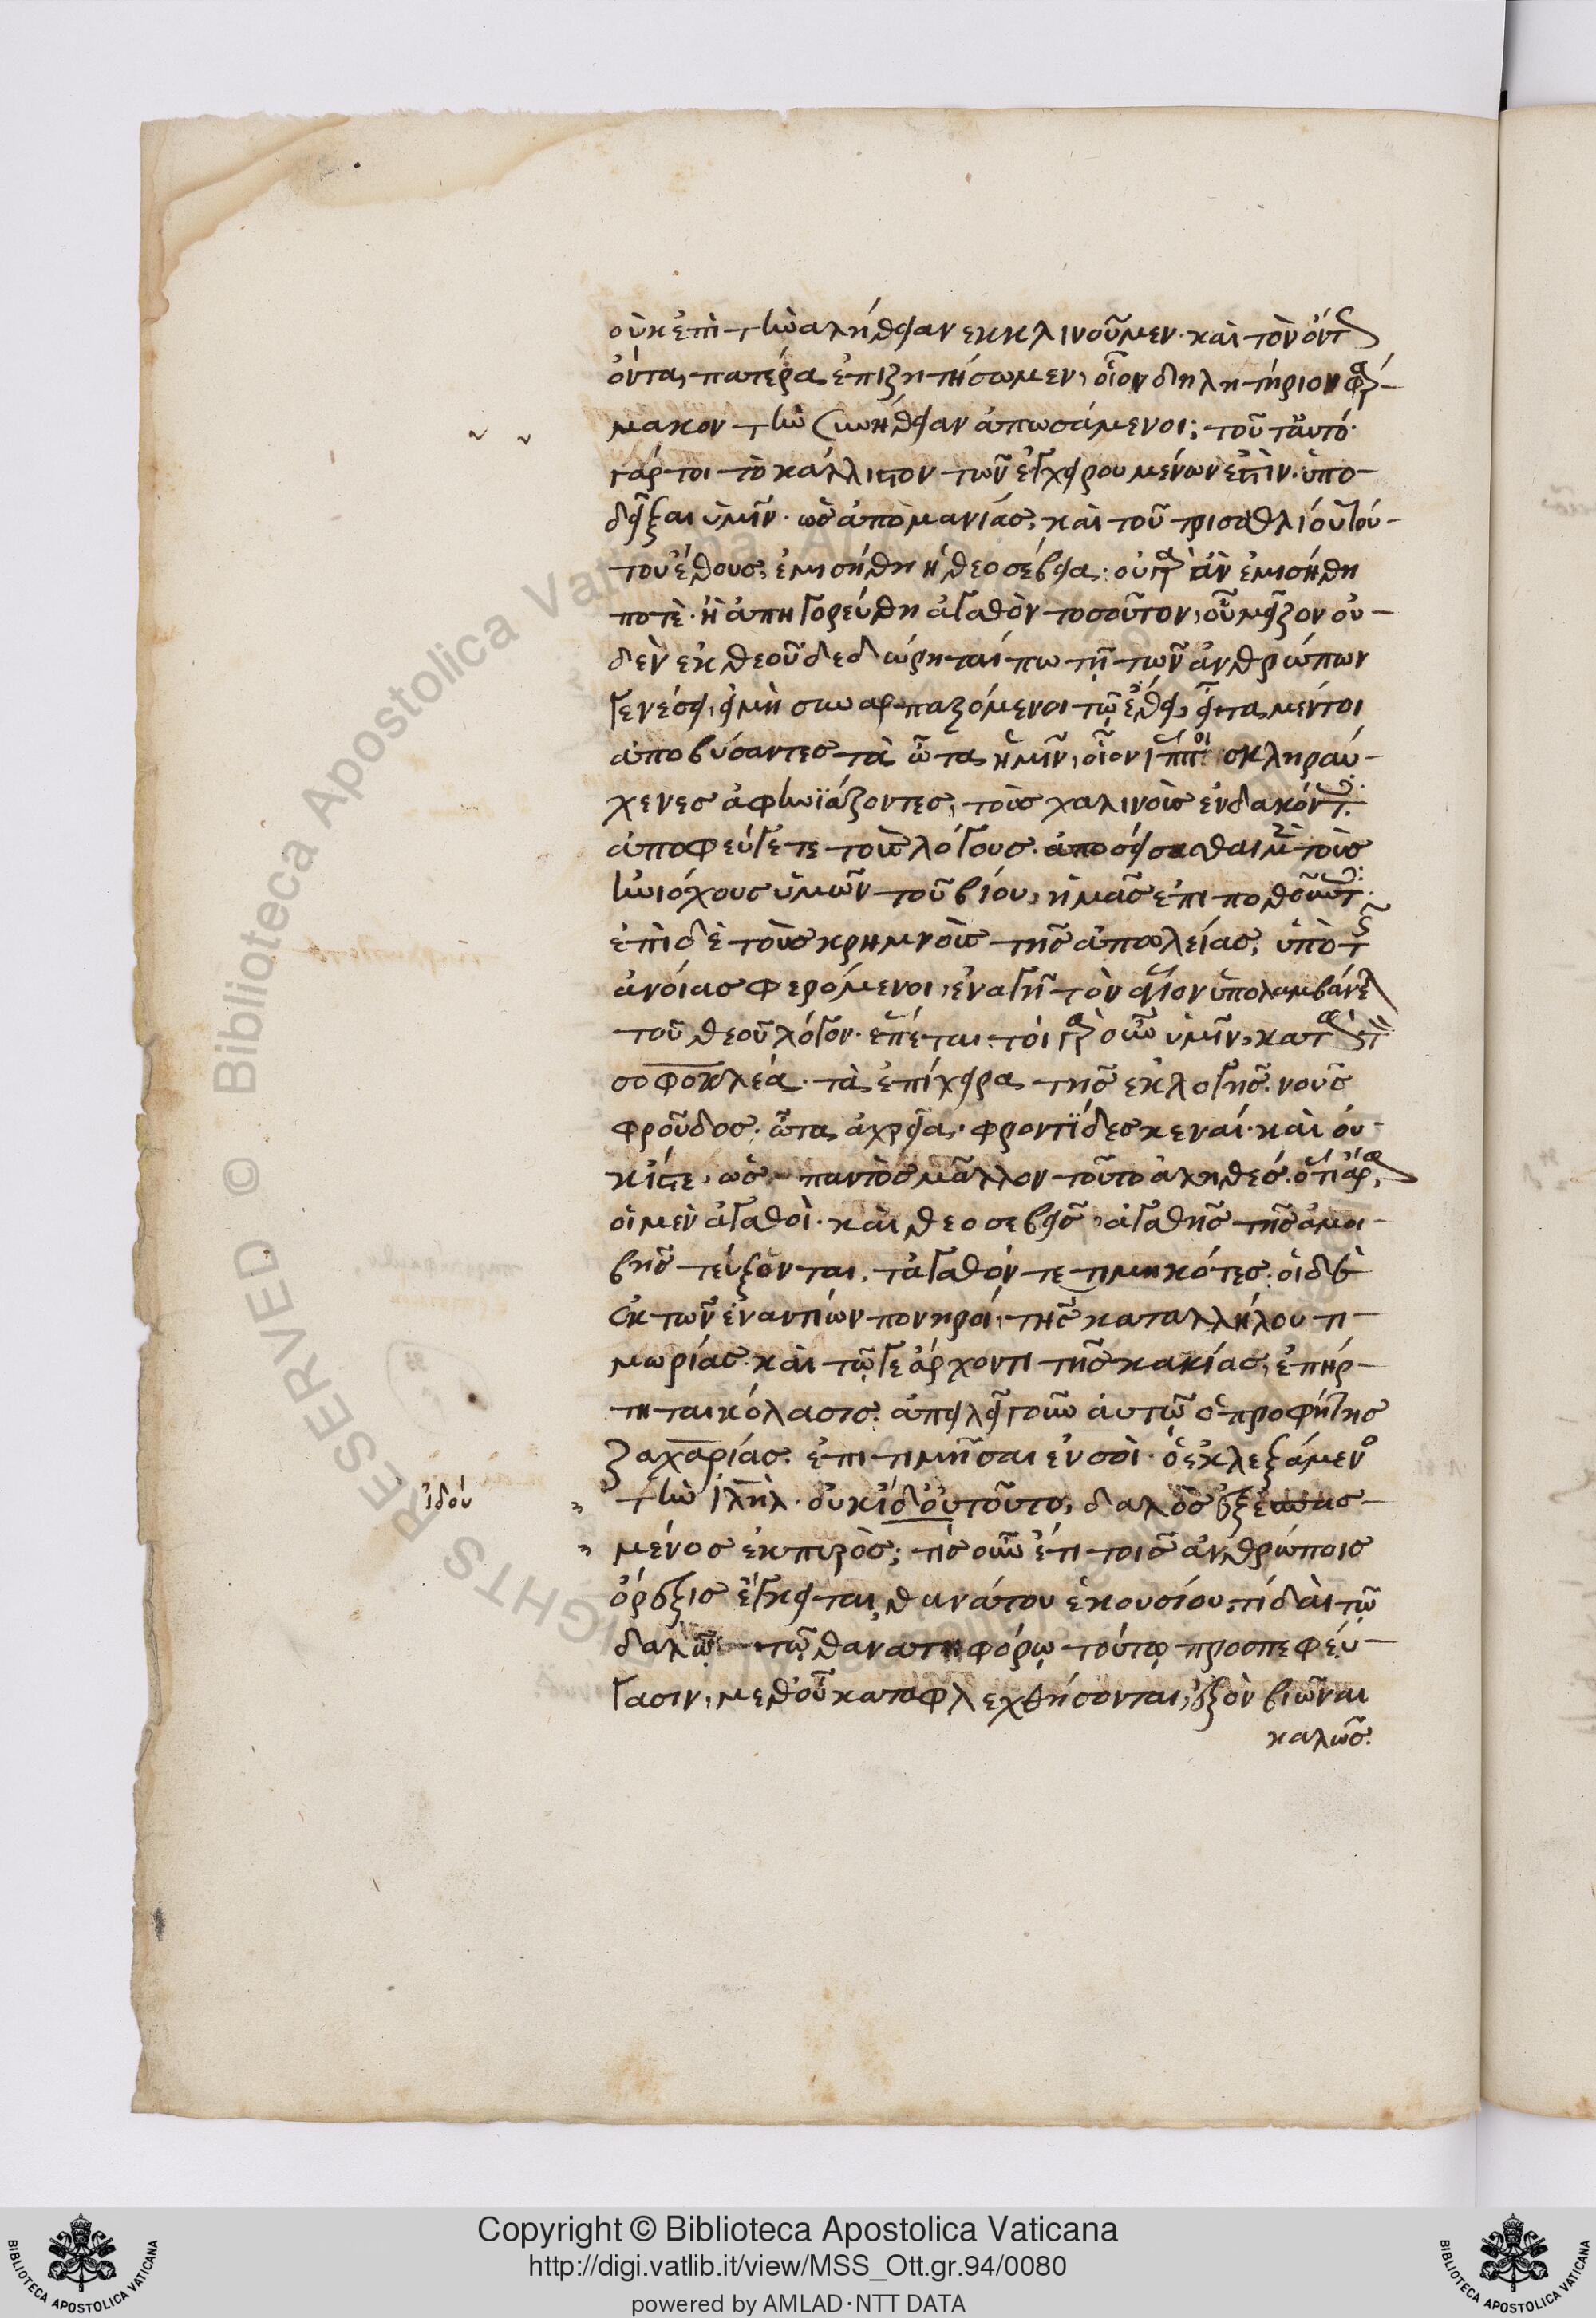 οὐκ ἐπὶ τὴν ἀλήθειαν ἐκκλινοῦμεν· καὶ τὸν ὄντως
ὄντα πατέρα ἐπιζητήσωμεν, οἷον δηλητήριον φάρ-
μακον τὴν συνήθειαν ἀπωσάμενοι; τοῦτ' αὐτό
γάρ τοι τὸ κάλλιστον τῶν ἐγχειρουμένων ἐστὶν· ὑπο-
δεῖξαι ὑμῖν· ὡς ἀπὸ μανίας, καὶ τοῦ τρισαθλίου τού-
του ἔθους, ἐμισήθη ἡ θεοσέβεια· οὐ γὰρ ἂν ἐμισήθη
ποτὲ· ἢ ἀπηγορεύθη ἀγαθὸν τοσοῦτον, οὗ μεῖζον οὐ-
δὲν ἐκ θεοῦ δεδώρηταί πω τῇ τῶν ἀνθρώπων
γενέσει, εἰ μὴ συναρπαζόμενοι τῷ ἔθει, εἶτα μέντοι
ἀποβύσαντες τὰ ὦτα ἡμῖν, οἷον ἵπποι σκληραύ-
χενες ἀφηνϊάζοντες, τοὺς χαλινοὺς ἐνδακόντες·
ἀποφεύγετε τοὺς λόγους· ἀποσείσασθαι μὲν τοὺς
ἡνιόχους ὑμῶν τοῦ βίου, ἡμᾶς ἐπιποθοῦντες·
ἐπὶ δὲ τοὺς κρημνοὺς τῆς ἀπωλείας, ὑπὸ τῆς
ἀνοίας φερόμενοι, ἐναγῆ τὸν ἅγιον ὑπολαμβάνετε
τοῦ θεοῦ λόγον· ἕπεται τοι γὰρ οὖν ὑμῖν, κατὰ τὸν
σοφοκλέα· τὰ ἐπίχειρα τῆς ἐκλογῆς· νοῦς
φροῦδος· ὦτα ἀχρεῖα· φροντΐδες κεναί· καὶ οὐ-
κ ἴστε, ὡς παντὸς μᾶλλον τοῦτο ἀληθές· ὅτι ἄρα,
οἱ μὲν ἀγαθοὶ· καὶ θεοσεβεῖς, ἀγαθῆς τῆς ἀμοι-
βῆς τεύξονται, τἀγαθόν τετιμηκότες· οἱ δὲ
ἐκ τῶν ἐναντίων πονηροί, τῆς καταλλήλου τι-
μωρίας· καὶ τῷ γε ἄρχοντι τῆς κακίας, ἐπήρ-
τηται κόλασις· ἀπειλεῖ γοῦν αὐτῷ ὁ προφήτης
ζαχαρίας· ἐπιτιμῆσαι ἐν σοὶ· ὁ ἐκλεξάμενος
τὴν ἱλὴλ· οὐκ ἰδού τοῦτο, δαλὸς ἐξεσπας-
ἰδού
μένος ἐκ πυρὸς; τίς οὖν ἔτι τοῖς ἀνθρώποις
ὄρεξις ἔγκειται, θανάτου ἑκουσίου; τί δαὶ τῷ
δαλῷ τῷ θανατηφόρῳ τούτῳ προσπεφεύ-
γασιν, μεθ' οὗ καταφλεχθήσονται, ἐξὸν βιῶναι
καλῶς·
Copyright © Biblioteca Apostolica Vaticana
http://digi.vatlib.it/view/MSS_Ott.gr.94/0080
powered by AMLAD · NTT DATA